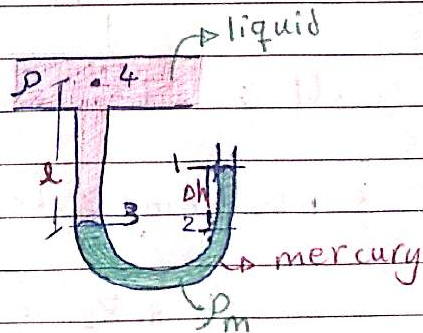 liquid
ρ
4
l
1
Δh
3
2
mercury
ρm